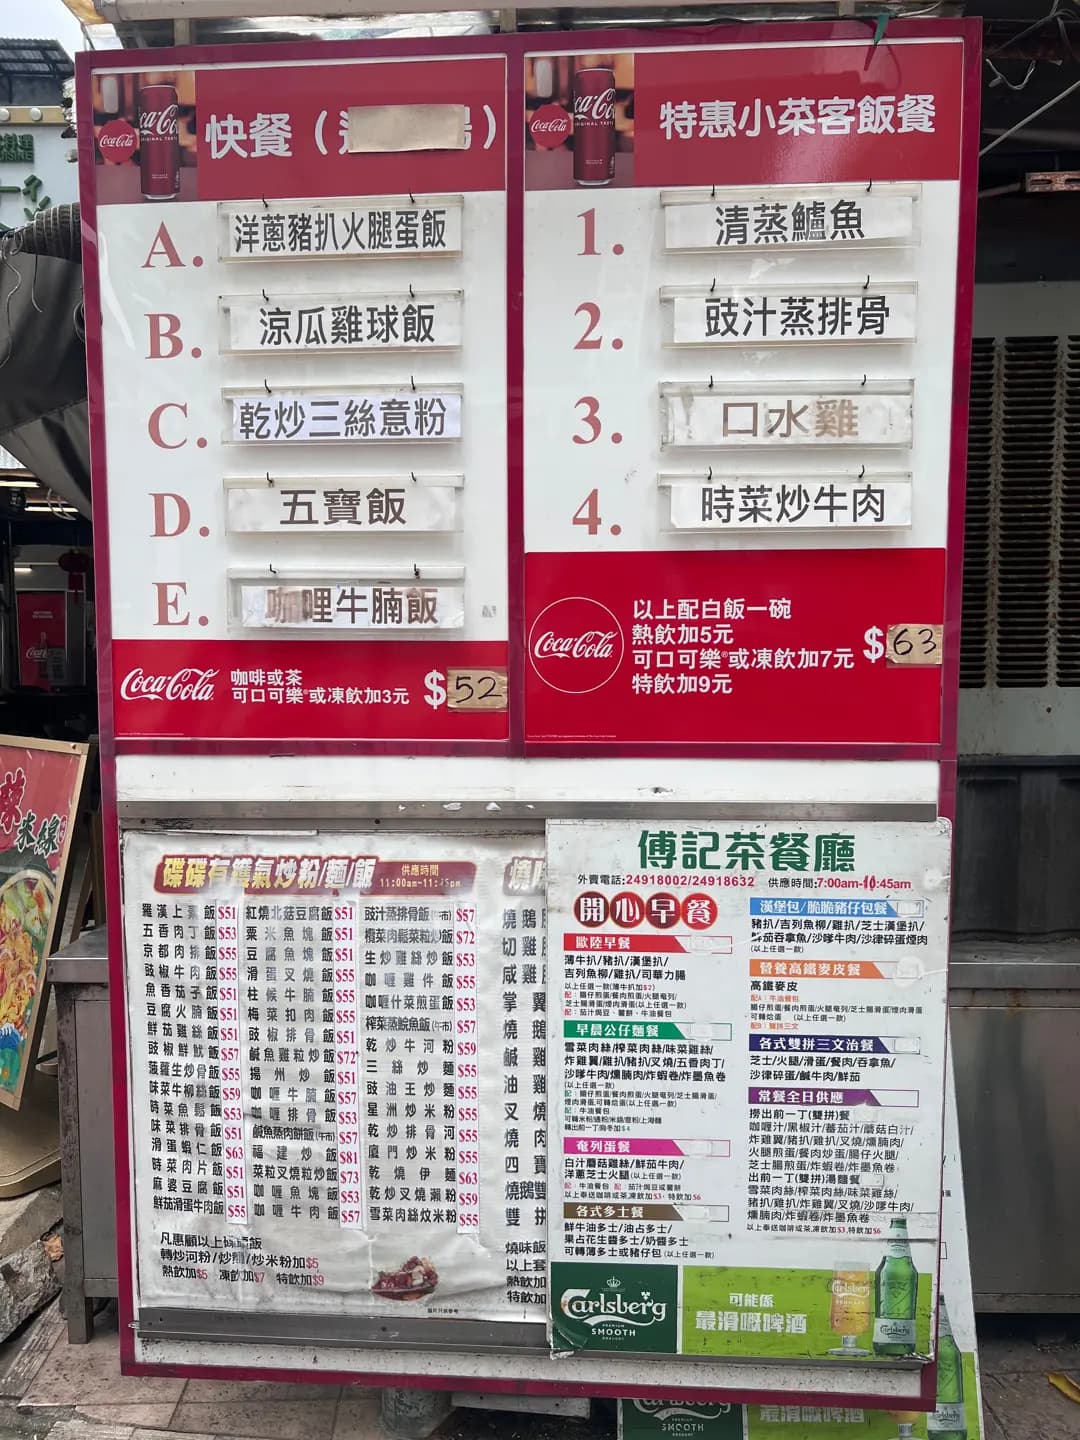 快餐（
A. 洋蔥豬扒火腿蛋飯
B. 涼瓜雞球飯
C. 乾炒三絲意粉
D. 五寶飯
E. 咖哩牛腩飯
Coca-Cola
咖啡或茶
可口可樂®或凍飲加3元
$52
特惠小菜客飯餐
1. 清蒸鱸魚
2. 豉汁蒸排骨
3. 口水雞
4. 時菜炒牛肉
Coca-Cola
以上配白飯一碗
熱飲加5元
可口可樂®或凍飲加7元
特飲加9元
$63
碟碟有鑊氣炒粉/麵/飯
供應時間
羅漢上素飯 $51
五香肉丁飯 $53
京都肉排飯 $55
豉椒牛肉飯 $55
魚香茄子飯 $51
豆腐火腩飯 $51
鮮茄雞絲飯 $51
豉椒鮮魷飯 $57
菠蘿生炒骨飯 $55
味菜牛柳絲飯 $59
時菜魚鬆飯 $53
味菜排骨飯 $51
滑蛋蝦仁飯 $63
時菜肉片飯 $51
麻婆豆腐飯 $51
鮮茄滑蛋牛肉飯 $55
紅燒北菇豆腐飯 $51
粟米魚塊飯 $51
豆腐魚塊飯 $51
滑蛋叉燒飯 $51
柱候牛腩飯 $55
梅菜扣肉飯 $55
豉椒排骨飯 $51
鹹魚雞粒炒飯 $72
揚州炒飯 $51
咖喱牛腩飯 $57
咖喱排骨飯 $53
鹹魚蒸肉餅飯(午市) $57
福建炒飯 $81
菜粒叉燒粒炒飯 $73
咖喱魚塊飯 $53
咖喱牛肉飯 $57
豉汁蒸排骨飯(午市) $57
欖菜肉鬆菜粒炒飯 $72
生炒雞絲炒飯 $53
咖喱雞件飯 $55
咖喱什菜煎蛋飯 $53
榨菜蒸鯇魚飯(午市) $57
乾炒牛河 $59
三絲炒麵 $55
豉油王炒麵 $55
星洲炒米粉 $55
乾炒排骨河 $55
廈門炒米粉 $55
乾燒伊麵 $63
乾炒叉燒瀨粉 $59
雪菜肉絲炆米粉 $55
轉炒河粉/炒麵/炒米粉加$5
熱飲加$5 凍飲加$7 特飲加$9
圖片只供參考
燒味飯
以上套
熱飲加
特飲加
傅記茶餐廳
外賣電話:24918002/24918632 供應時間:7:00am-10:45am
開心早餐
歐陸早餐
薄牛扒/豬扒/漢堡扒/
吉列魚柳/雞扒/司華力腸
以上任選一款(薄牛扒加$2)
配：腸仔煎蛋/餐肉煎蛋/火腿奄列/
芝士腸滑蛋/煙肉滑蛋(以上任選一款)
配：茄汁焗豆、薯餅、牛油餐包
早晨公仔麵餐
雪菜肉絲/榨菜肉絲/味菜雞絲/
炸雞翼/雞扒/豬扒叉燒/五香肉丁/
沙嗲牛肉/燻腩肉/炸蝦卷/炸墨魚卷
(以上任選一款)
配：牛油餐包
奄列蛋餐
白汁蘑菇雞絲/鮮茄牛肉/
洋蔥芝士火腿(以上任選一款)
配：牛油餐包 配：茄汁焗豆或薯餅
以上奉送咖啡或茶,凍飲加$3，特飲加$6
各式多士餐
鮮牛油多士/油占多士/
果占花生醬多士/奶醬多士
可轉薄多士或豬仔包(以上任選一款)
漢堡包/脆脆豬仔包餐
豬扒/吉列魚柳/雞扒/芝士漢堡扒/
鮮茄吞拿魚/沙嗲牛肉/沙律碎蛋煙肉
(以上任選一款)
營養高鐵麥皮餐
高鐵麥皮
配A：牛油餐包
腸仔煎蛋/餐肉煎蛋/火腿奄列/芝士腸滑蛋/煙肉滑蛋
可轉炝蛋 (以上任選一款)
配B：雙拼三文
各式雙拼三文治餐
芝士/火腿/滑蛋/餐肉/吞拿魚/
沙律碎蛋/鹹牛肉/鮮茄
常餐全日供應
撈出前一丁(雙拼)餐
咖喱汁/黑椒汁/蕃茄汁/蘑菇白汁/
炸雞翼/豬扒/雞扒/叉燒/燻腩肉/
火腿煎蛋/餐肉炒蛋/腸仔火腿/
芝士腸煎蛋/炸蝦卷/炸墨魚卷
出前一丁(雙拼)湯麵餐
雪菜肉絲/榨菜肉絲/味菜雞絲/
豬扒/雞扒/炸雞翼/叉燒/沙嗲牛肉/
燻腩肉/炸蝦卷/炸墨魚卷
以上奉送咖啡或茶,凍飲加$3,特飲加$6
Carlsberg
PREMIUM
SMOOTH
DRAUGHT
可能係
最滑嘅啤酒